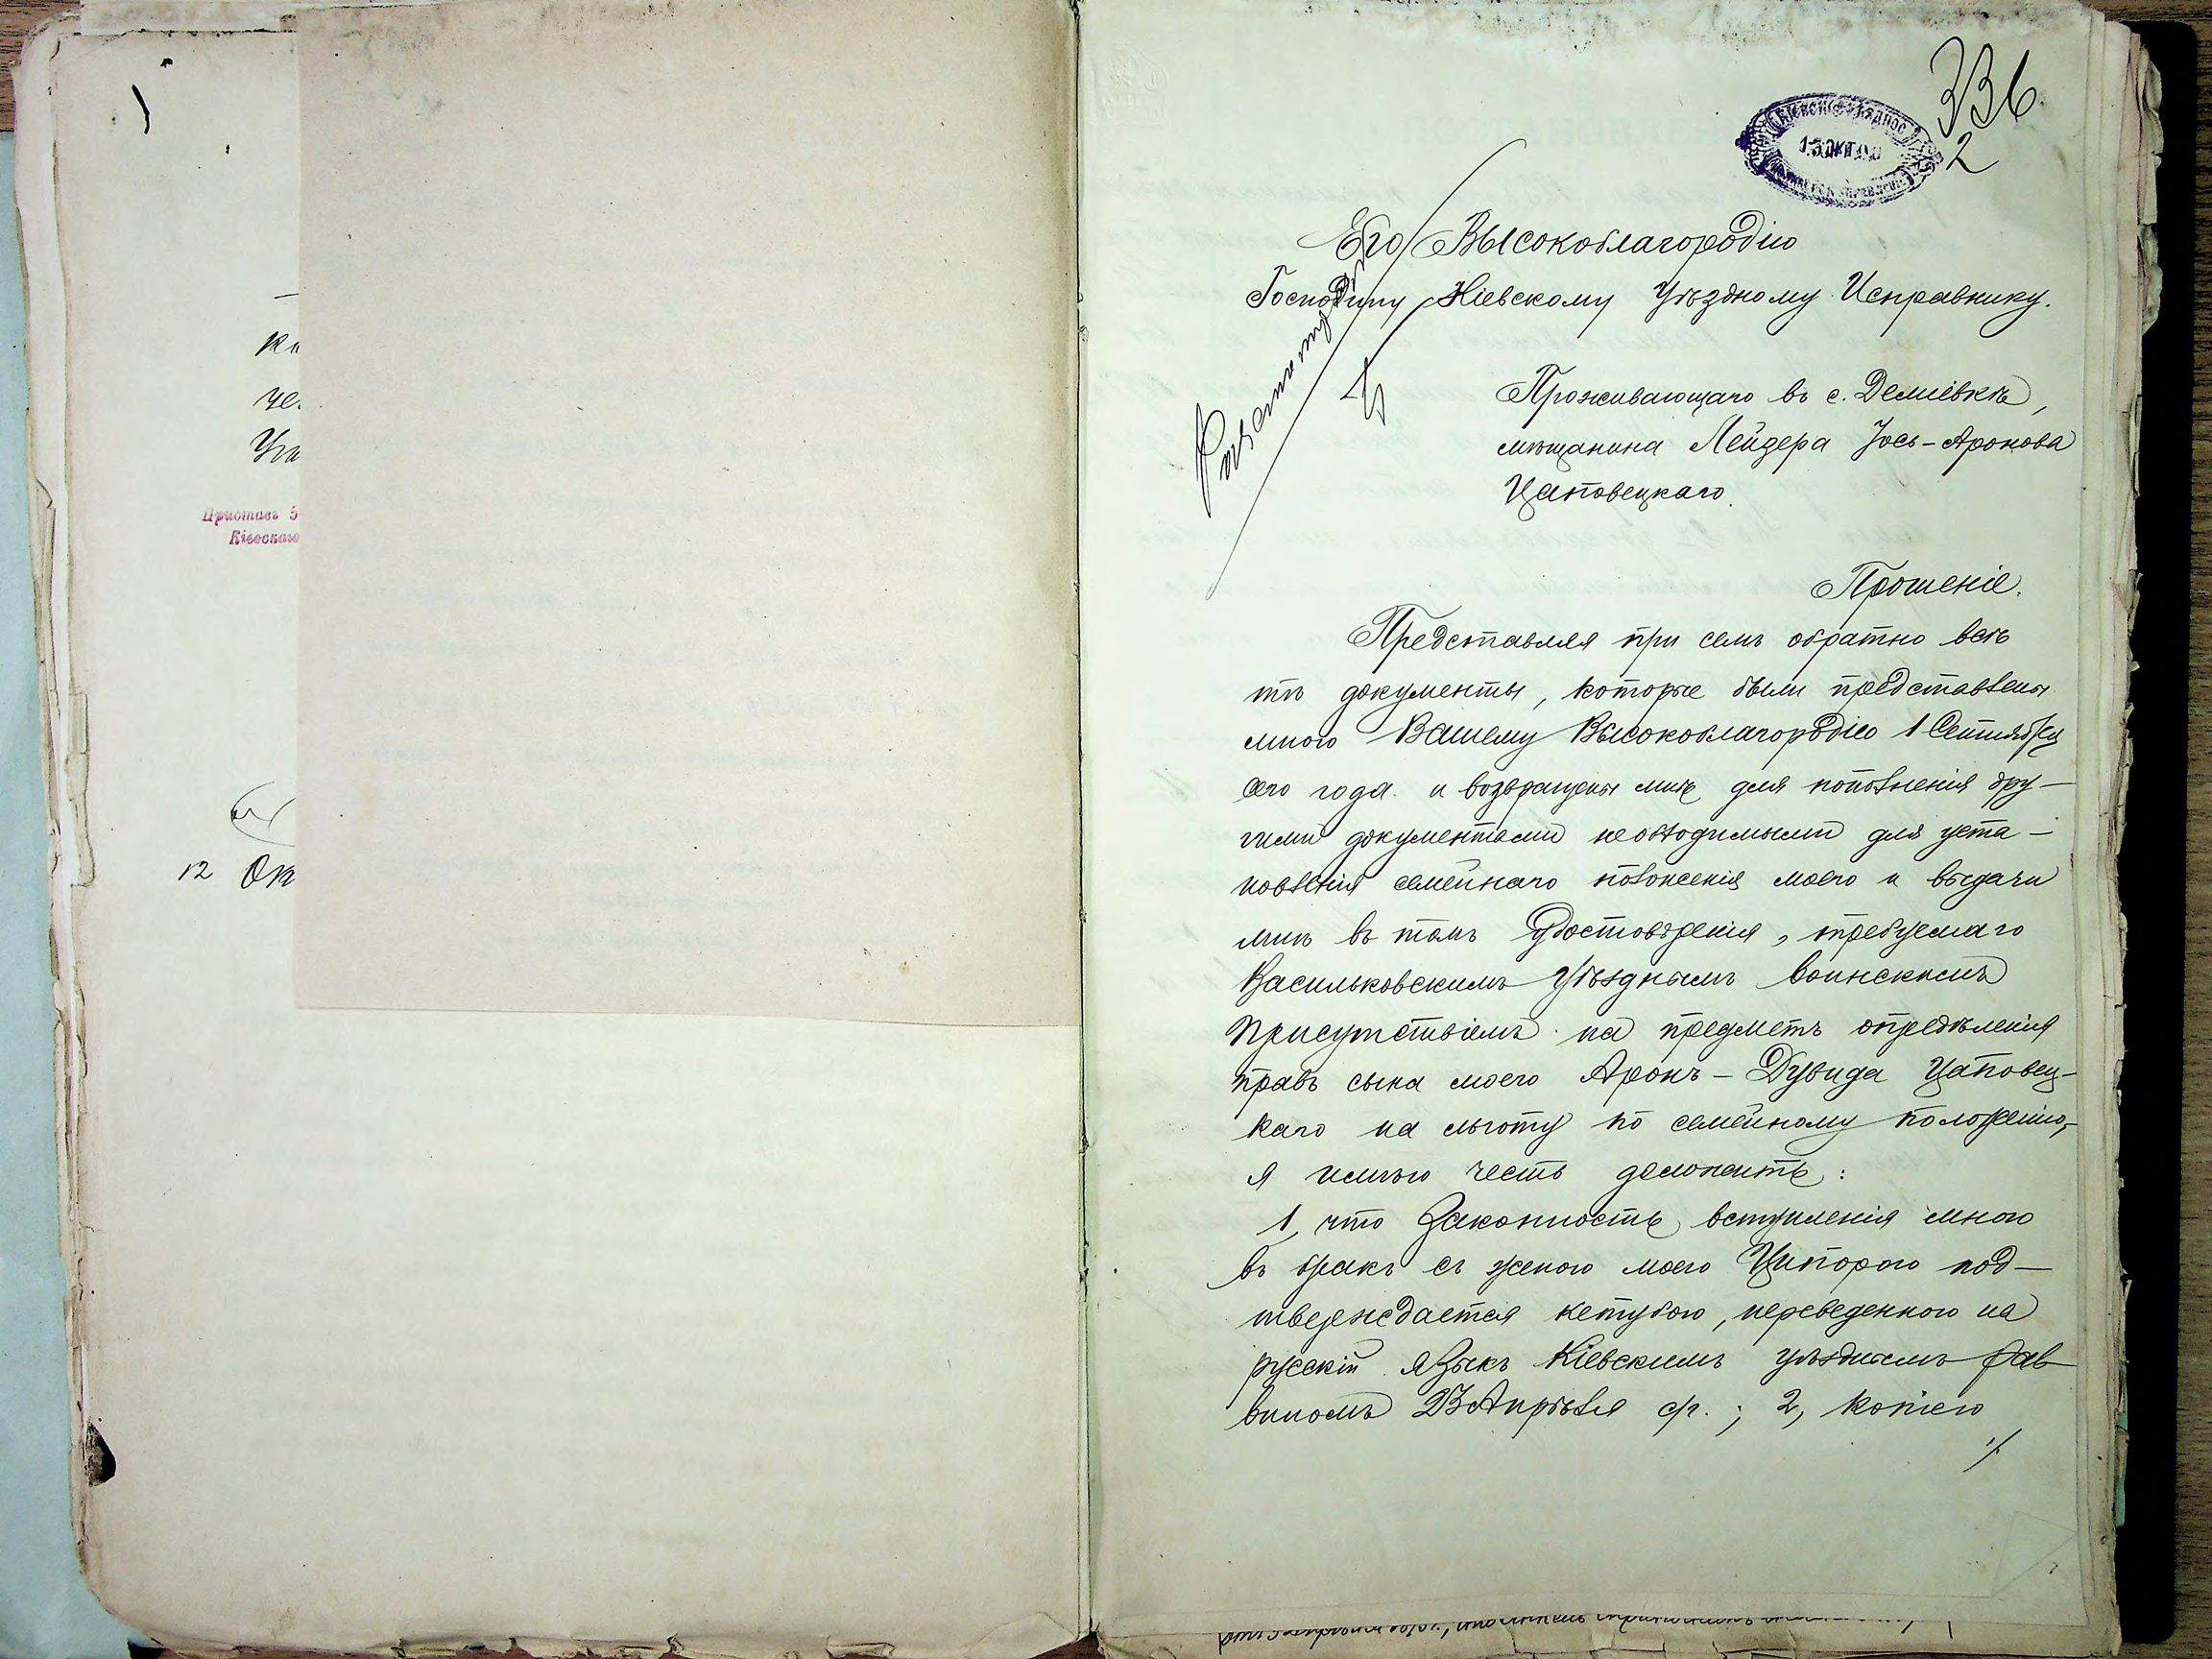 1
Ки
че
Уѣ
Приставъ 5
Кіевскаго
12 Ок
336
2
15 ОКТ
Его Высокоблагородію
Господину Кіевскому Уѣздному Исправнику.
Проживающаго въ с. Деміевкѣ,
мѣщанина Лейзера Іось-Аронова
Цаповецкаго.
Прошеніе.
Представляя при семъ обратно всѣ
тѣ документы, которые были представлены
мною Вашему Высокоблагородію 1 Сентября
сего года и возвращены мнѣ для пополненія дру-
гими документами необходимыми для уста-
новленія семейнаго положенія моего и выдачи
мнѣ въ томъ удостовѣренія, требуемаго
Васильковскимъ Уѣзднымъ воинскимъ
Присутствіемъ на предметъ опредѣленія
правъ сына моего Аронъ-Дувида Цаповец-
каго на льготу по семейному положенію,
я имѣю честь доложить:
1, что законность вступленія мною
въ бракъ съ женою моею Ципорою под-
тверждается кетубою, переведенною на
русскій языкъ Кіевскимъ уѣзднымъ рав
виномъ 23 Апрѣля с/г.; 2, копіею
./.